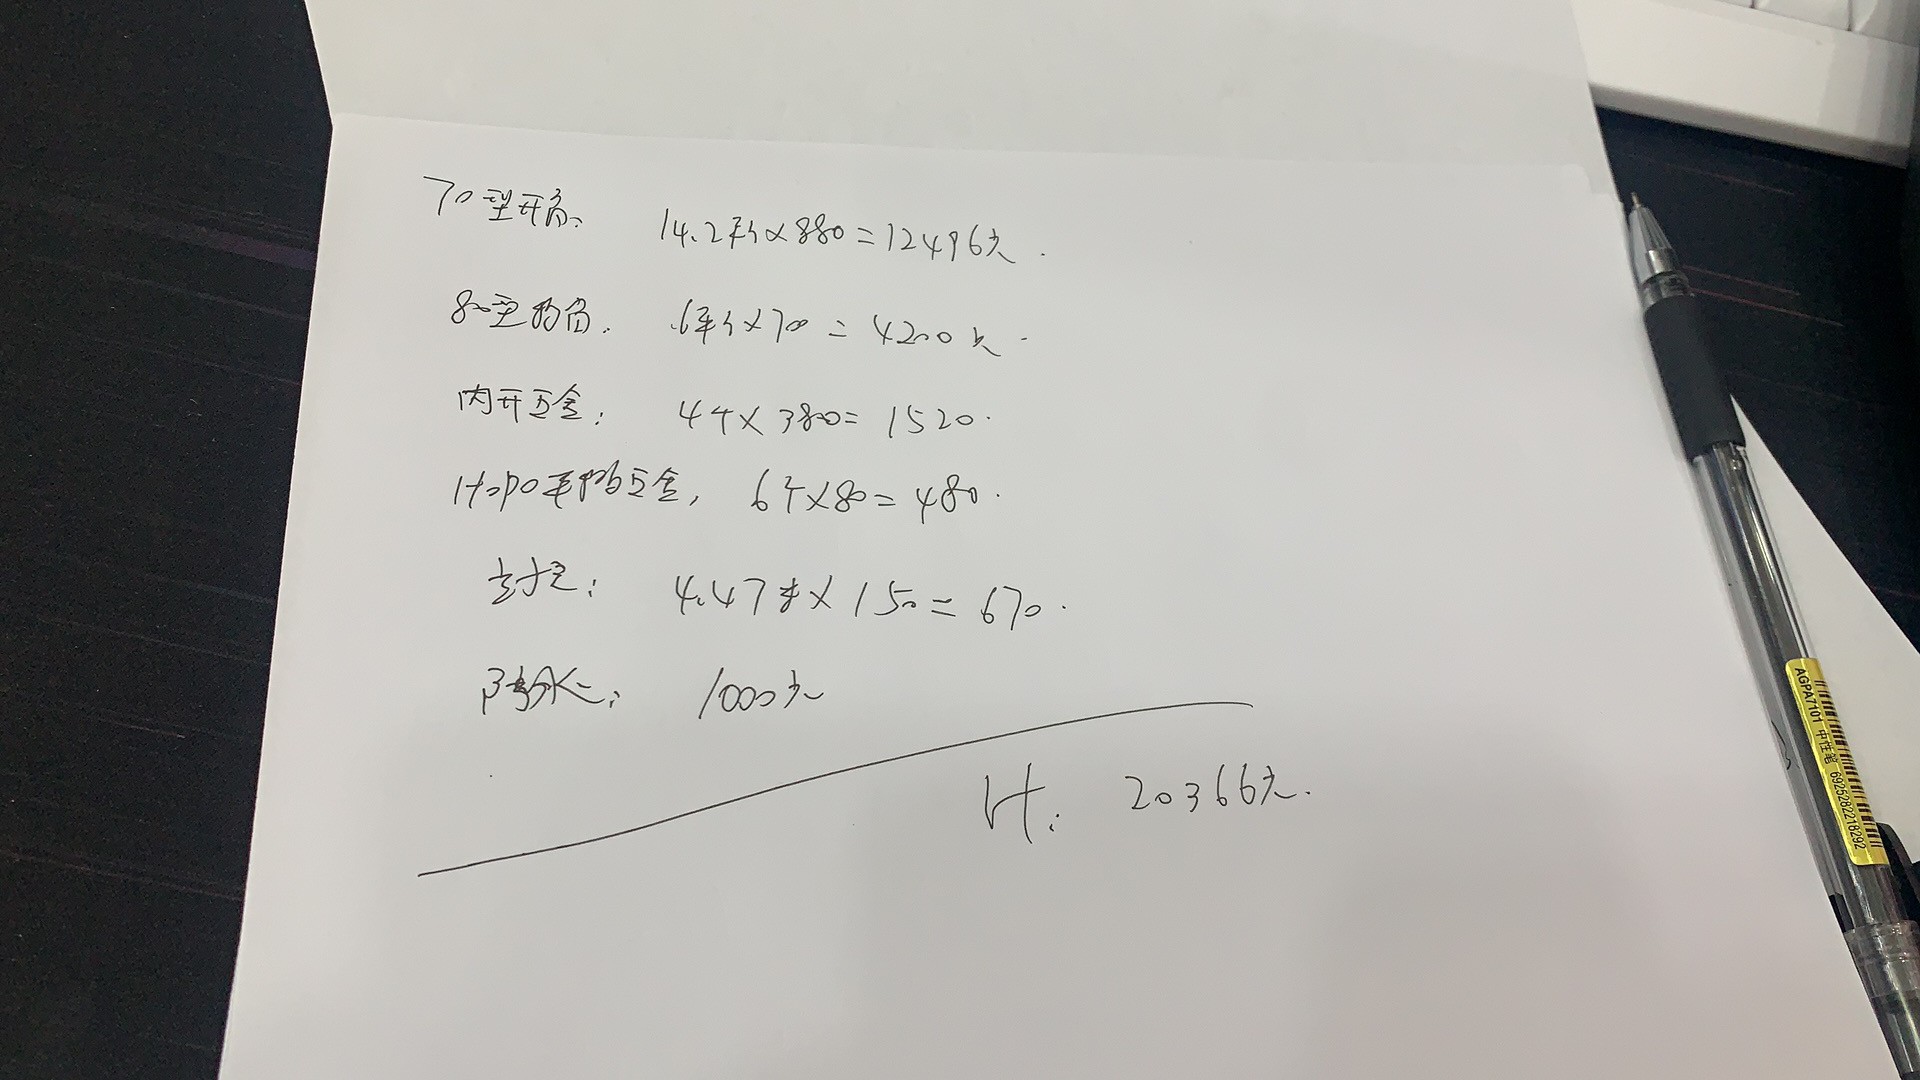 70型开窗: 14.2平方×880=12496元.
80型移窗: 6平方×700=4200元.
内开五金: 4个×380=1520.
Hopo平移五金, 6个×80=480.
封板: 4.47米×150=670.
防水: 1000元
计: 20366元.
AGPA7101 中性笔 6925282218292